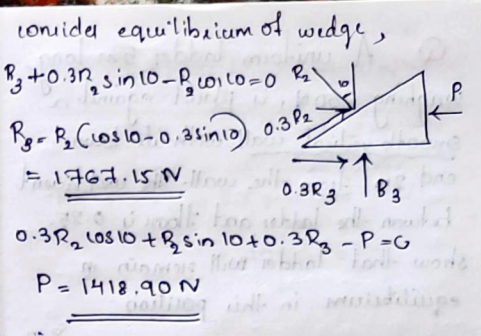 consider equilibrium of wedge,
R3 + 0.3R2 sin10 - R2 cos10 = 0
R3 = R2 (cos10 - 0.3 sin10)
= 1767.15 N
R2
10
0.3R2
P
0.3R3
R3
0.3R2 cos10 + R2 sin 10 + 0.3R3 - P = 0
P = 1418.90 N